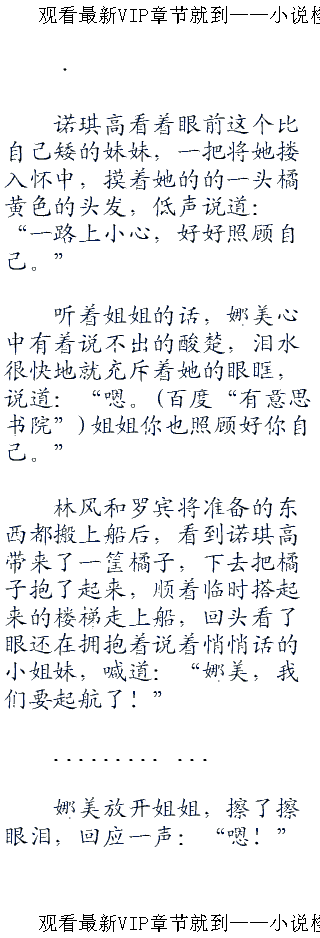 观看最新VIP章节就到——小说
.
诺琪高看着眼前这个比
自己矮的妹妹，一把将她搂
入怀中，摸着她的的一头橘
黄色的头发，低声说道：
“一路上小心，好好照顾自
己。”
听着姐姐的话，娜美心
中有着说不出的酸楚，泪水
很快地就充斥着她的眼眶，
说道：“嗯。(百度“有意思
书院”)姐姐你也照顾好你自
己。”
林风和罗宾将准备的东
西都搬上船后，看到诺琪高
带来了一筐橘子，下去把橘
子抱了起来，顺着临时搭起
来的楼梯走上船，回头看了
眼还在拥抱着说着悄悄话的
小姐妹，喊道：“娜美，我
们要起航了！”
......... ...
娜美放开姐姐，擦了擦
眼泪，回应一声：“嗯！”
观看最新VIP章节就到——小说